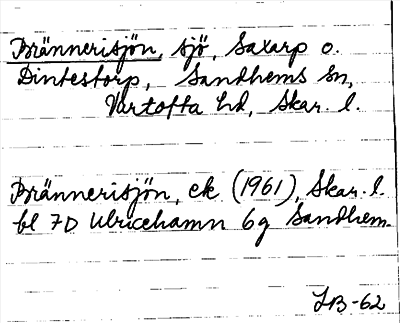 Brännerisjön, sjö, Saxarp o.
Dintestorp, Sandhems sn,
Vartofta hd, Skar. l.
Brännerisjön, ek (1961), Skar. l.
bl 7D Ulricehamn 6g Sandhem.
IB-62